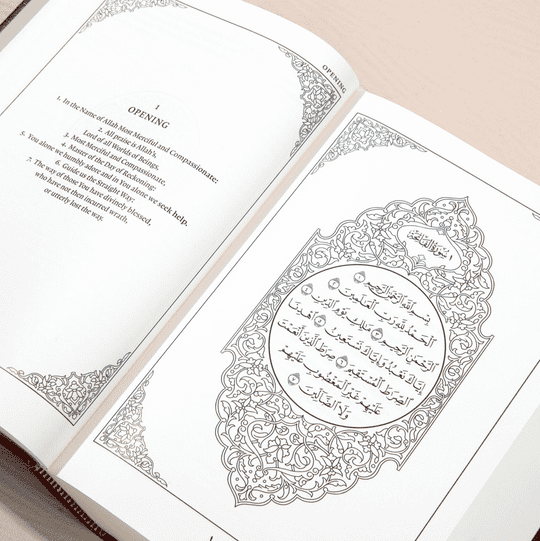 OPENING
1
OPENING
1. In the Name of Allah Most Merciful and Compassionate:
2. All praise is Allah's,
Lord of all Worlds of Beings,
3. Most Merciful and Compassionate,
4. Master of the Day of Reckoning:
5. You alone we humbly adore and in You alone we seek help.
6. Guide us the Straight Way:
7. The way of those You have divinely blessed,
who have not then incurred wrath,
or utterly lost the way.
١ سورة الفاتحة
بِسْمِ اللَّهِ الرَّحْمَٰنِ الرَّحِيمِ ١
الْحَمْدُ لِلَّهِ رَبِّ الْعَالَمِينَ ٢
الرَّحْمَٰنِ الرَّحِيمِ ٣ مَالِكِ يَوْمِ الدِّينِ ٤
إِيَّاكَ نَعْبُدُ وَإِيَّاكَ نَسْتَعِينُ ٥ اهْدِنَا
الصِّرَاطَ الْمُسْتَقِيمَ ٦ صِرَاطَ الَّذِينَ أَنْعَمْتَ
عَلَيْهِمْ غَيْرِ الْمَغْضُوبِ عَلَيْهِمْ
وَلَا الضَّالِّينَ ٧
١